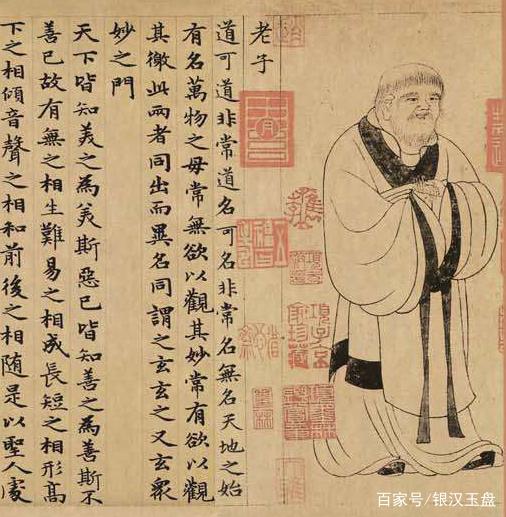 老子
道可道非常道名可名非常名無名天地之始
有名萬物之母常無欲以觀其妙常有欲以觀
其徼此兩者同出而異名同謂之玄玄之又玄衆
妙之門
天下皆知美之為美斯惡已皆知善之為善斯不
善已故有無之相生難易之相成長短之相形高
下之相傾音聲之相和前後之相随是以聖人處
項子京
家珍藏
百家号/银汉玉盘